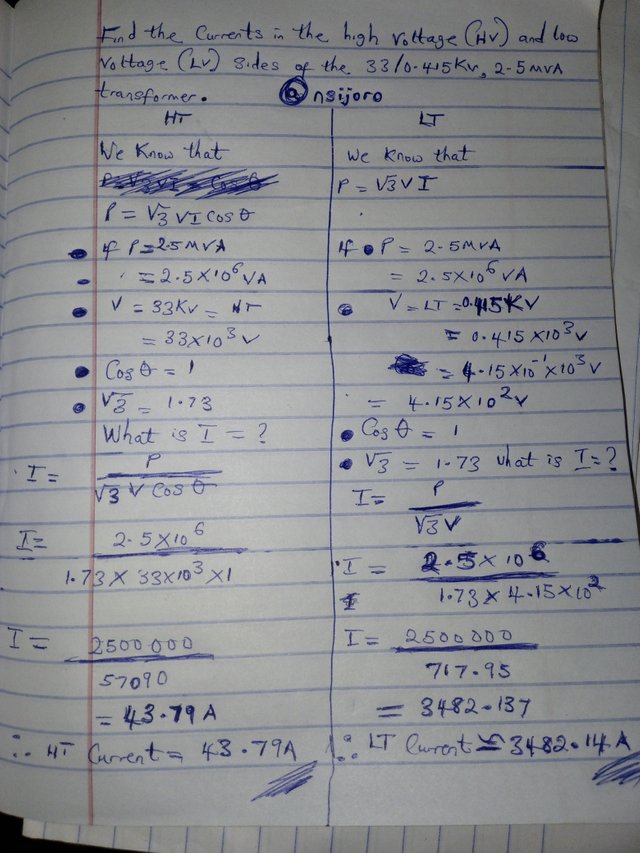 Find the Currents in the high voltage (HV) and low
Voltage (LV) sides of the 33/0.415Kv, 2.5MVA
transformer. @nsijoro
HT
We Know that
P = √3 VI Cos θ
• if P = 2.5MVA
- = 2.5×10⁶ VA
• V = 33Kv = HT
= 33×10³ V
• Cos θ = 1
• √3 = 1.73
What is I = ?
I = P
√3 V Cos θ
I = 2.5×10⁶
1.73 × 33×10³ × 1
I = 2500000
57090
= 43.79A
∴ HT Current = 43.79A
LT
We Know that
P = √3 V I
If • P = 2.5MVA
= 2.5×10⁶ VA
• V = LT = 0.415KV
= 0.415×10³ V
= 4.15×10⁻¹×10³ V
= 4.15×10² V
• Cos θ = 1
• √3 = 1.73 what is I = ?
I = P
√3 V
I = 2.5×10⁶
1.73 × 4.15×10²
I = 2500000
717.95
= 3482.137
∴ LT Current ≃ 3482.14A